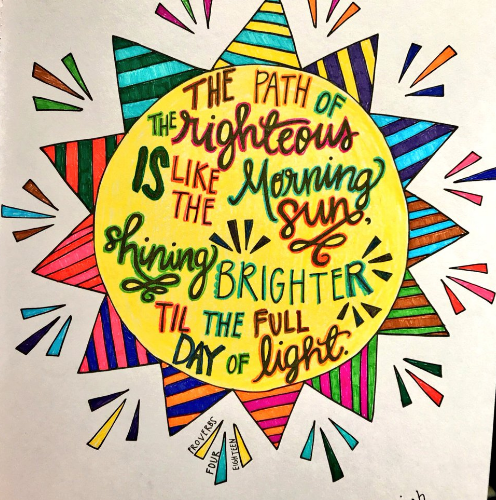 THE PATH OF
THE righteous
IS LIKE THE Morning
sun,
shining BRIGHTER
TIL THE FULL
DAY OF light.
PROVERBS
FOUR
EIGHTEEN